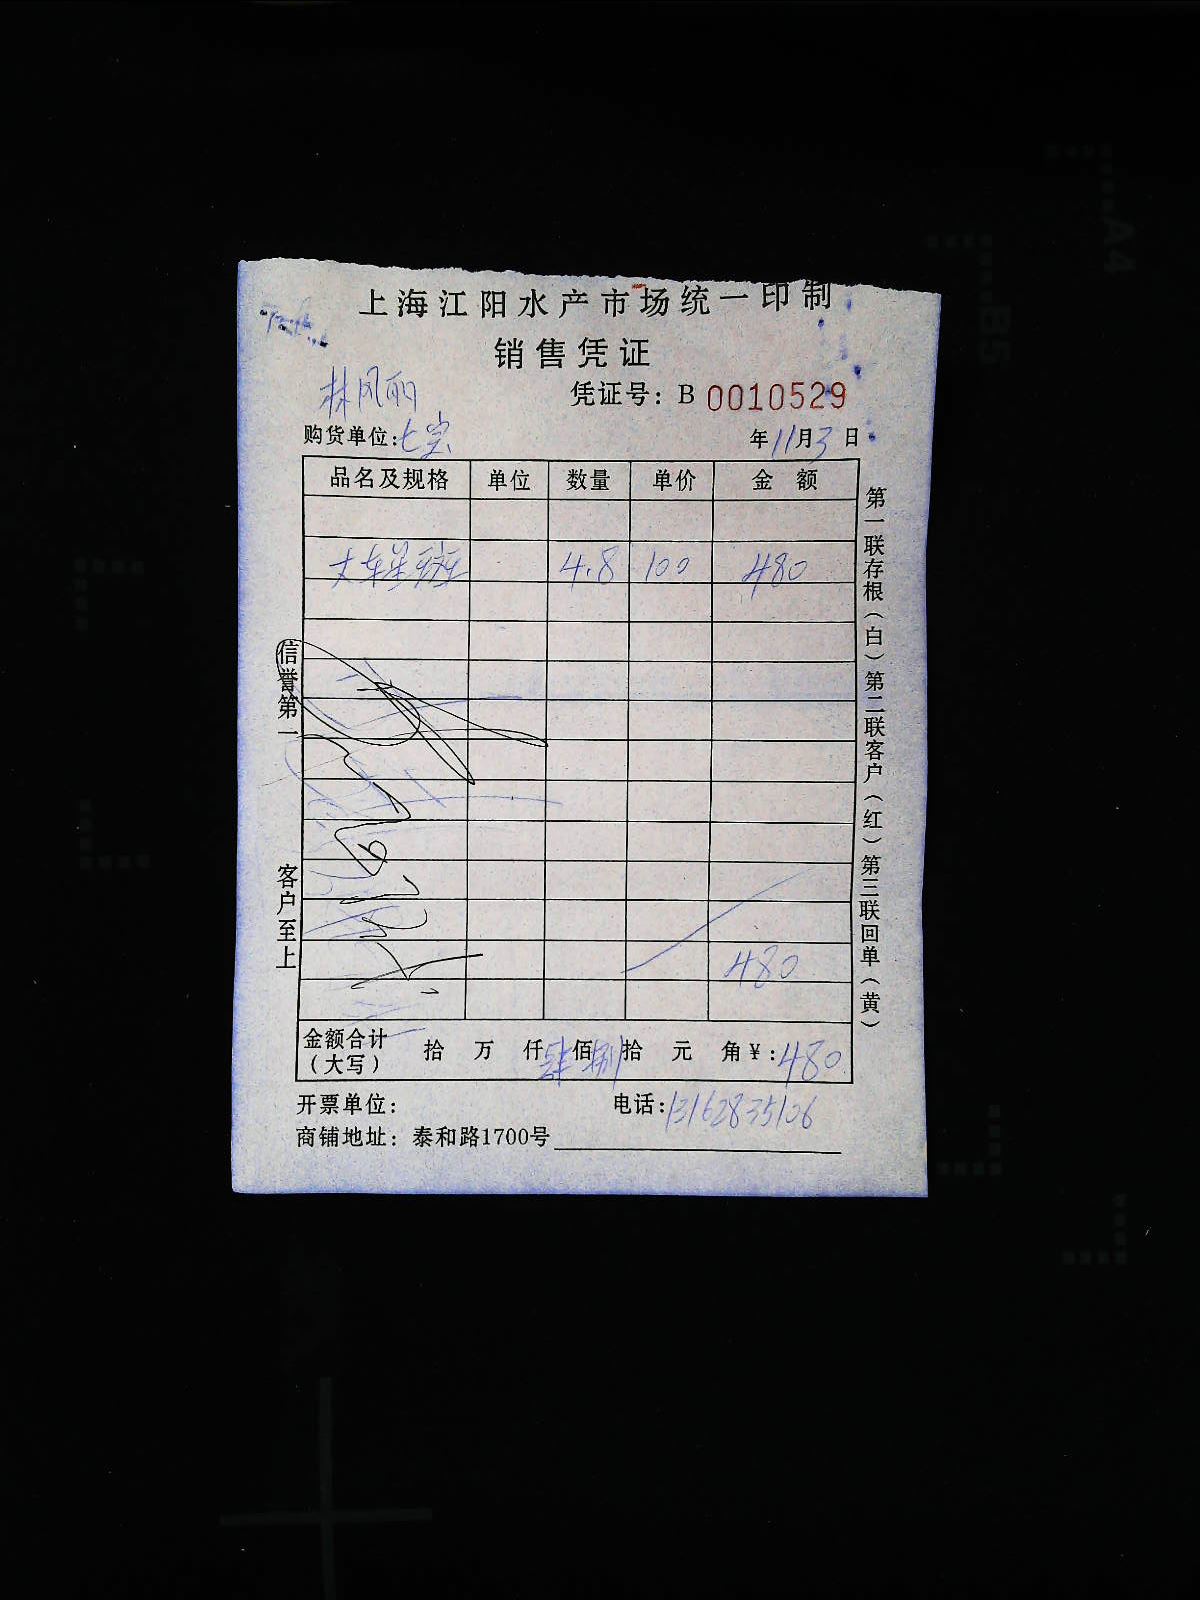 上海江阳水产市场统一印制
销售凭证
林风丽
凭证号：B 0010529
购货单位：七宝
年11月3日
品名及规格 单位 数量 单价 金额
4.8 100 480
480
金额合计（大写） 拾 万 仟肆佰捌拾 元 角￥：480
开票单位：
电话：13162835106
商铺地址：泰和路1700号
信誉第一 客户至上
第一联存根（白）第二联客户（红）第三联回单（黄）